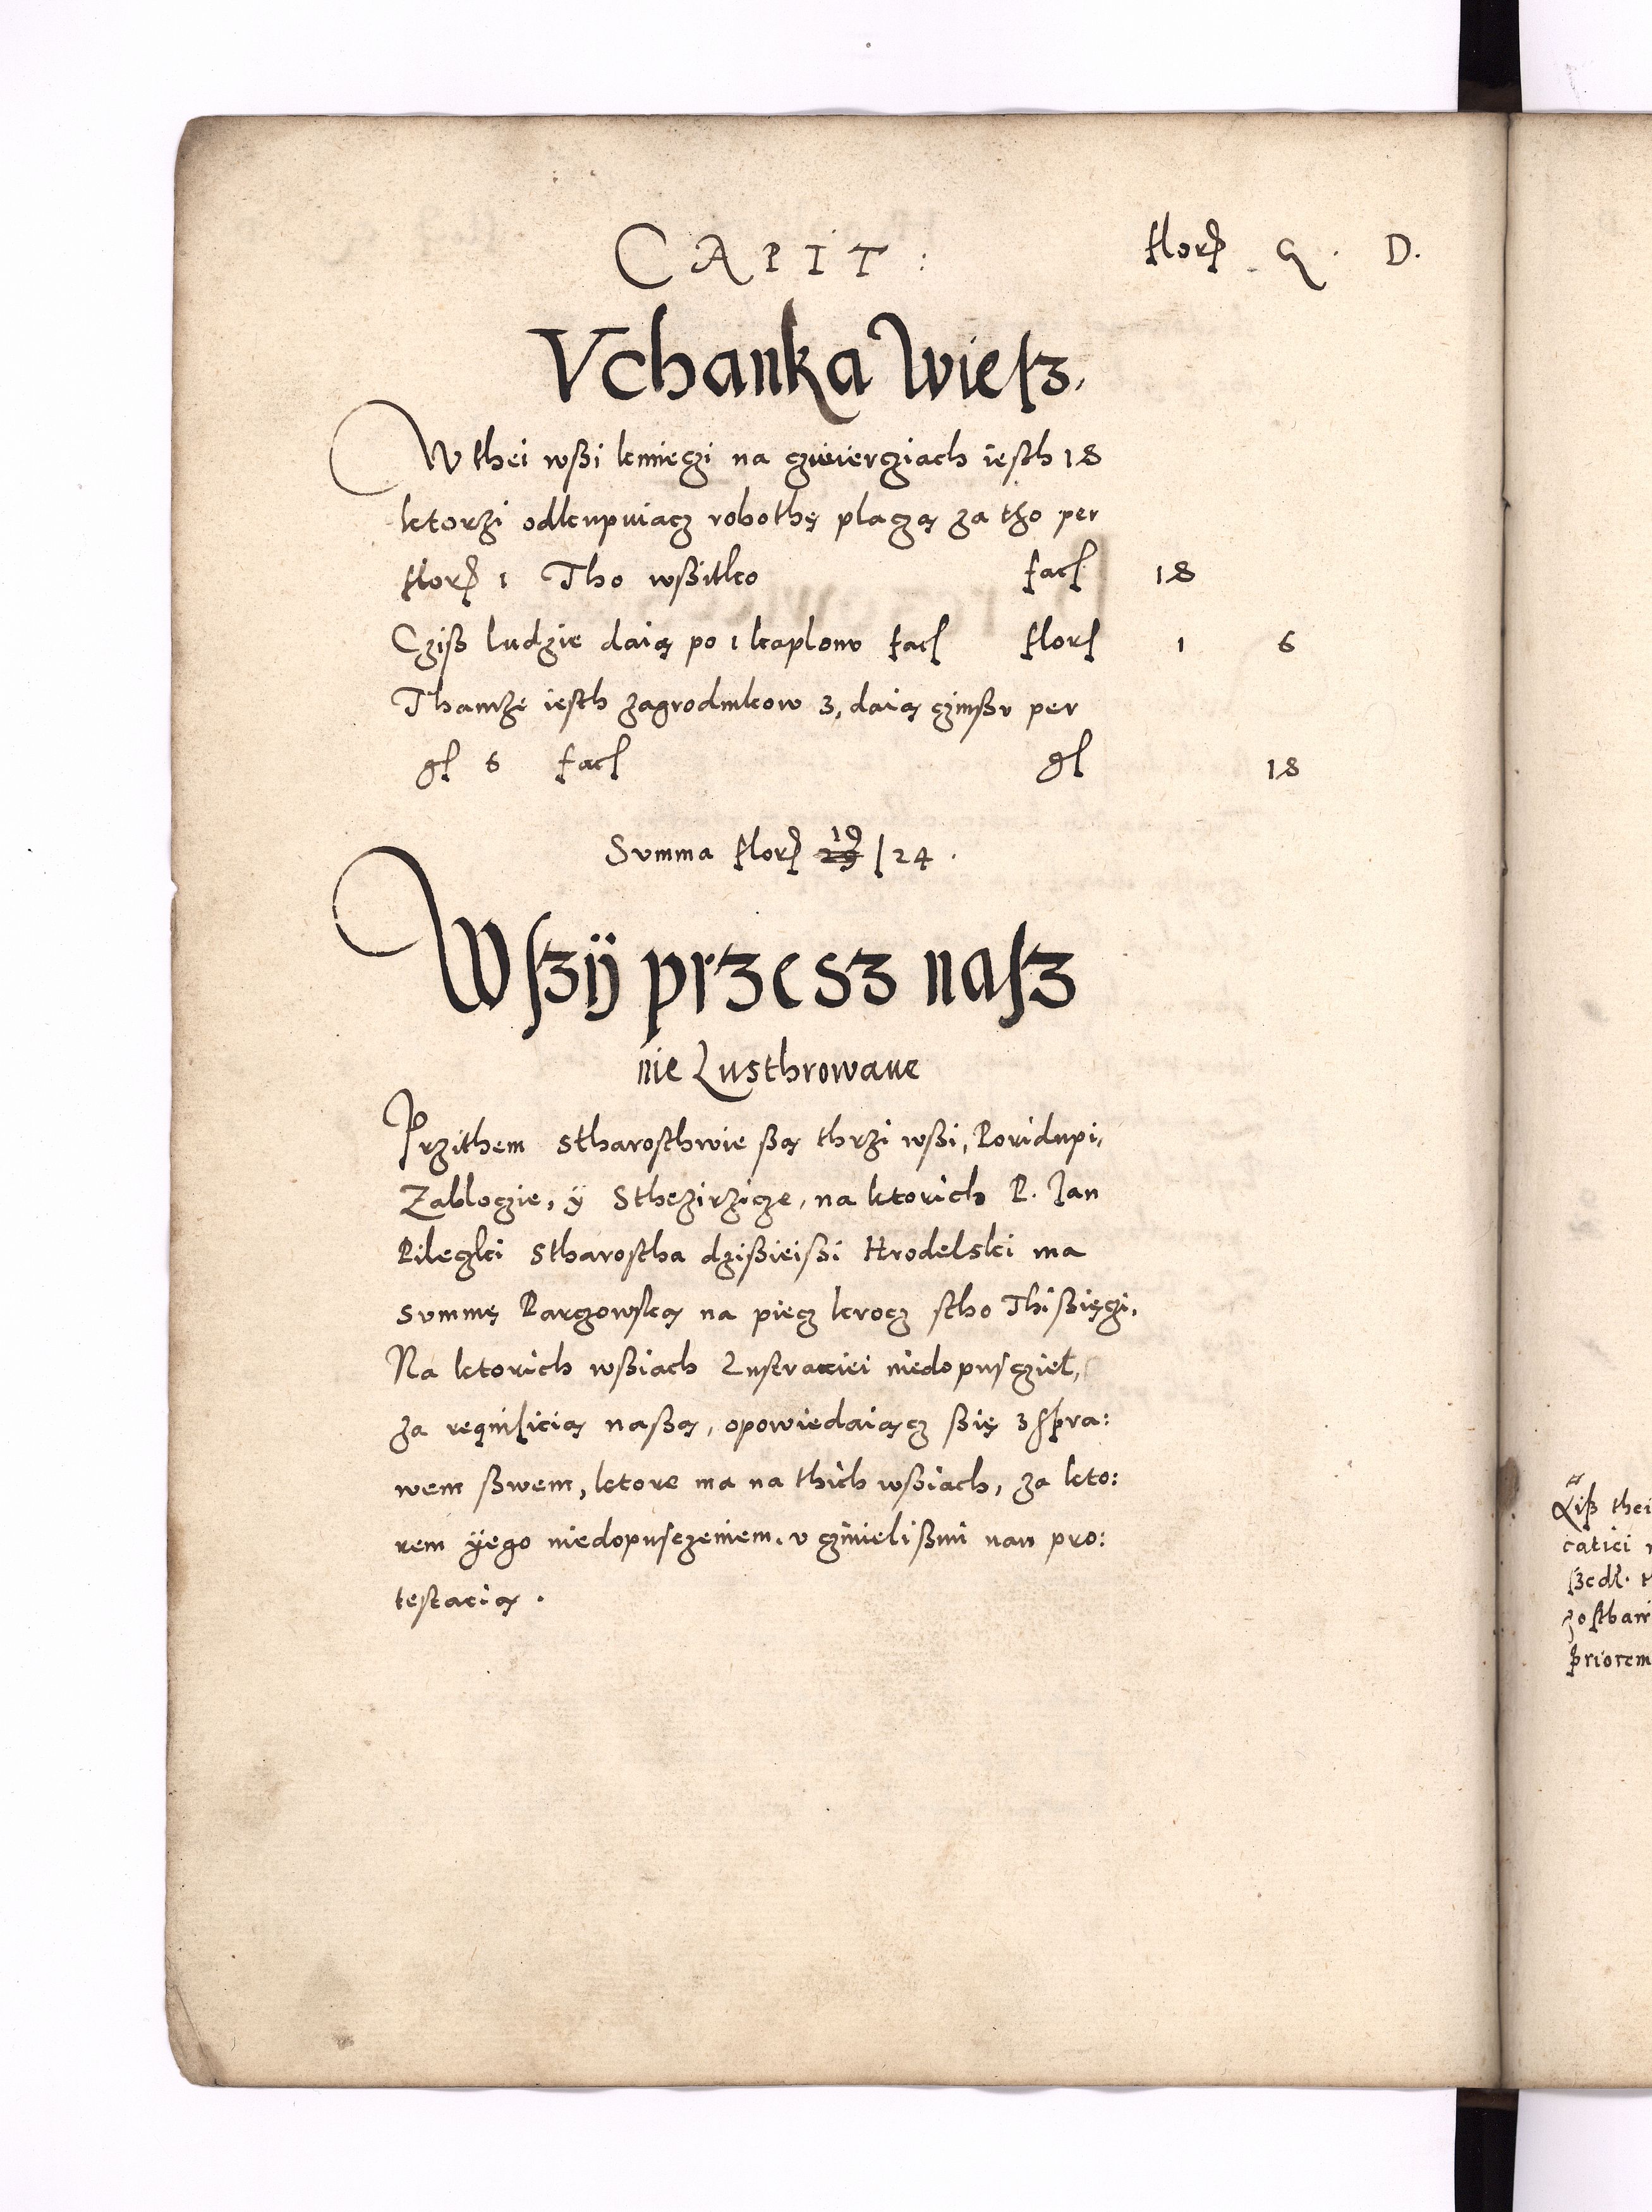 CAPIT: florẜ. G. D.
Vchanka Wiesz.
W thei wßi kmieczi na czwierciach iesth 18
ktorzi odkupuiacz robothę placzą za tho per
florẜ 1 Tho wßitko facẜ 18
Cziß ludzie daią po 1 kaplonw facẜ florẜ 1 6
Thamze iesth zagrodnikow 3, daią czinßv per
gẜ 6 facẜ gẜ 18
Svmma florẜ 19 / 24.
Wszÿ przesz nasz
nie Lusthrowane
Przithem stharosthwie ßą thrzi wßi, Poridupi,
Zabloczie, ÿ Sthezirzicze, na ktorich P. Jan
Pileczki Stharostha dzißieißi Hrodelski ma
svmmę Parczowską na piecz krocz stho Thißięczi,
Na ktorich wßiach Lustraciei niedopusczieł,
za requisicią naßą, opowiedaiącz ßię z spra:
wem ßwem, ktore ma na thich wßiach, za kto:
rem ÿego niedopusczeniem, vczinielißmi nan pro:
testacią.
Liß thei
catiei
szedł. t
zosthawi
priorem